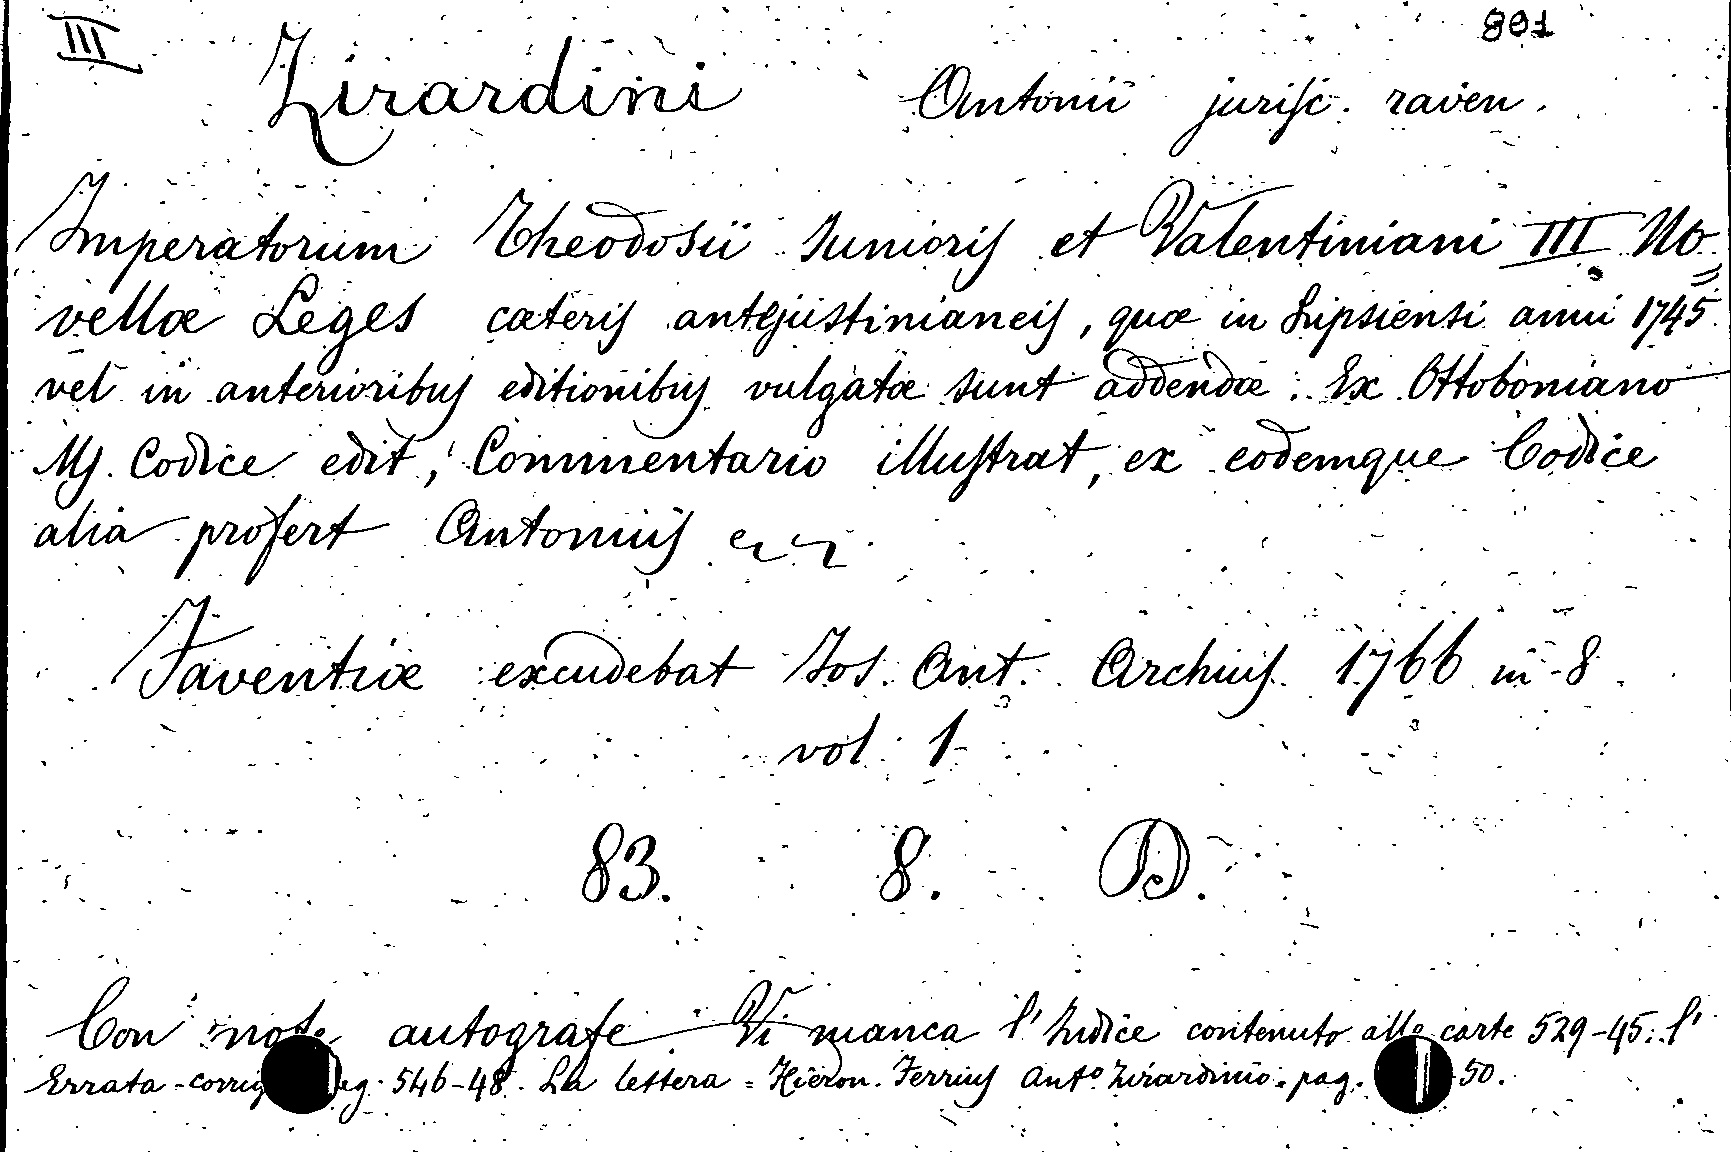 III 801
Zirardini Antonii jurisc. raven.
Imperatorum Theodosii Junioris et Valentiniani III No=
vellæ Leges cæteris antejustinianeis, quæ in Lipsiensi anni 1745
vel in anterioribus editionibus vulgatæ sunt addendæ. Ex Ottoboniano
Ms. Codice edit, Commentario illustrat, ex eodemque Codice
alia profert Antonius
Faventiæ excudebat Jos. Ant. Archius. 1766 in-8.
vol. 1
83. 8. D.
Con note autografe - Vi manca l'Indice contenuto alle carte 529-45: l'
Errata-corrig ag. 546-48. La lettera = Hieron. Ferrius Ant.º Zirardinio. pag. 50.